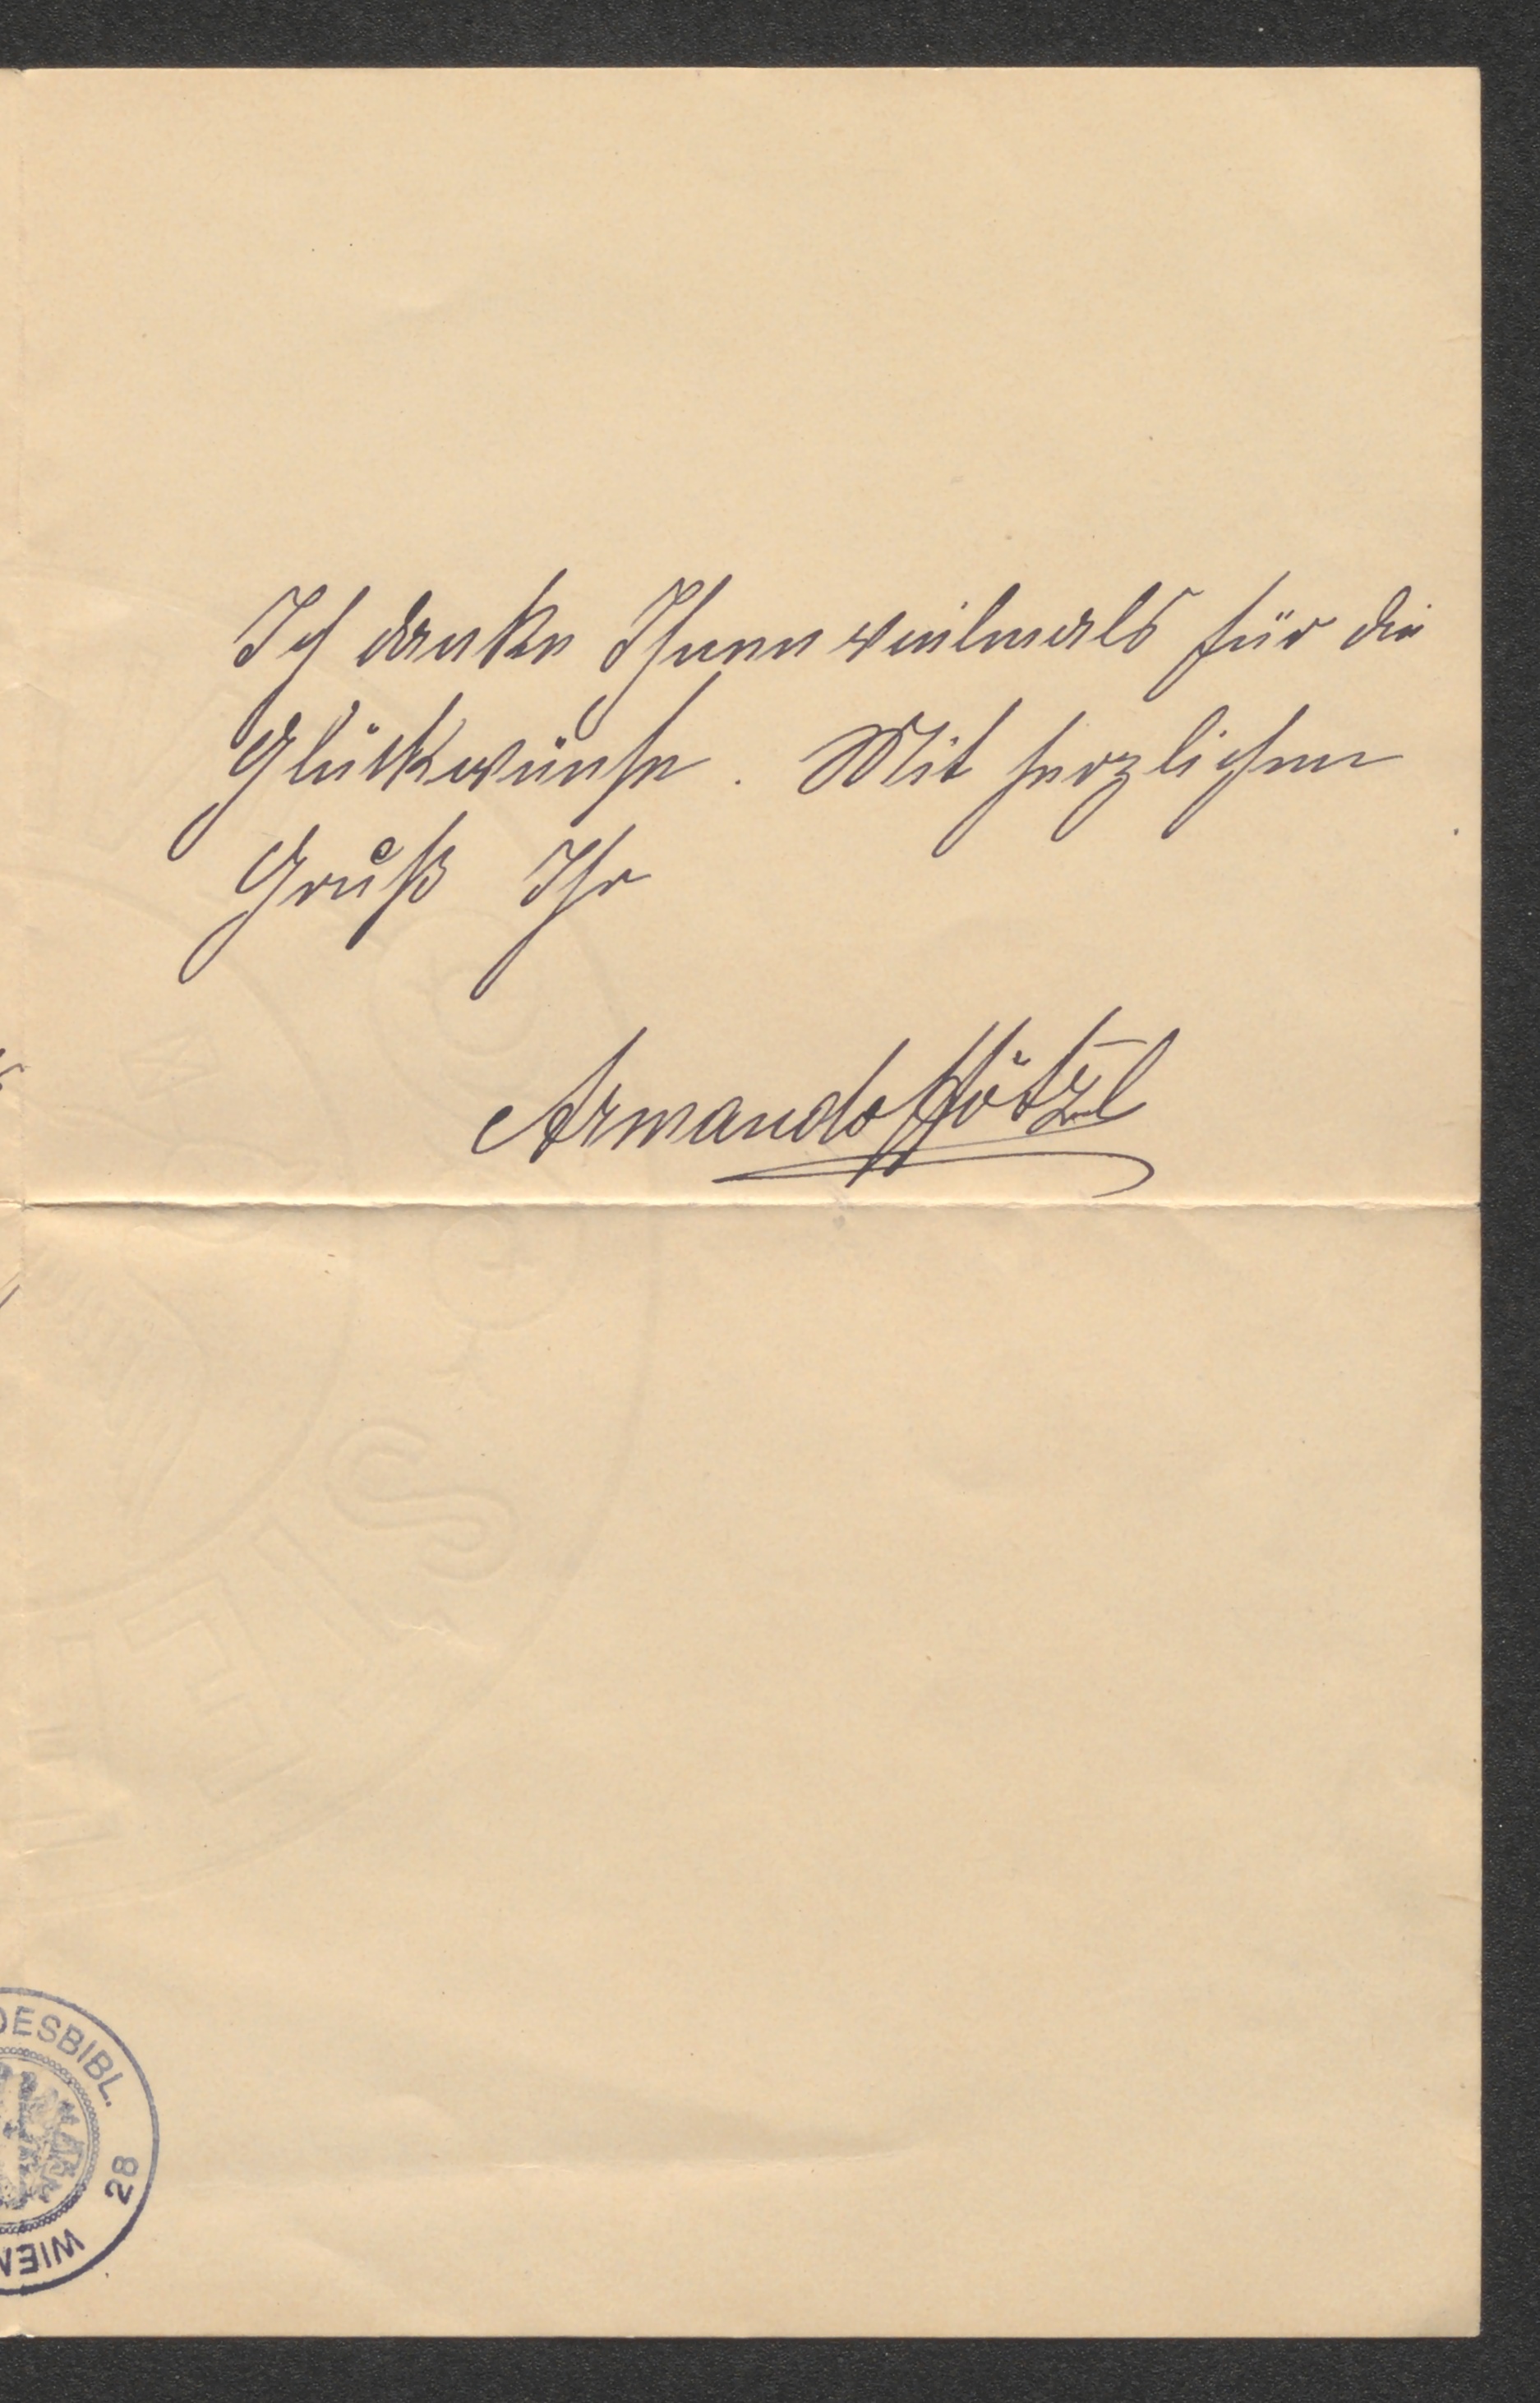 Ich danke Ihnen vielmals für die
Glückwünsche. Mit herzlichem
Gruß Ihr
Armando Hötzl
DESBIBL.
28
WIEN